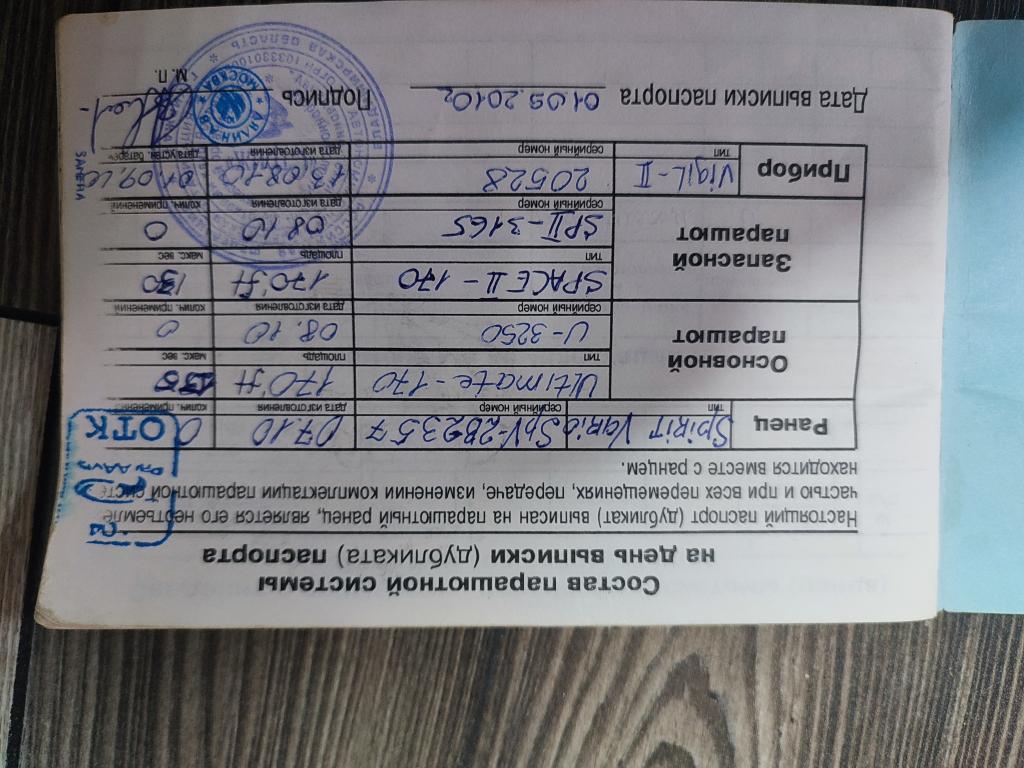 Состав парашютной системы
на день выписки (дубликата) паспорта
Настоящий паспорт (дубликат) выписан на парашютный ранец, является его неотъемле
частью и при всех перемещениях, передаче, изменении комплектации парашютной систе
находится вместе с ранцем.
ОТК
Ранец Spirit Vario SpV-2B92357 07.10 0
тип серийный номер дата изготовления колич. применений
Основной парашют
Ultimate-170 170 ft
тип площадь макс. вес
U-3250 08.10 0
серийный номер дата изготовления колич. применений
Запасной парашют
SPACE II-170 170 ft
тип площадь макс. вес
SPII-3165 08.10 0
серийный номер дата изготовления колич. применений
Прибор Vigil-II 20528 13.08.10
тип серийный номер дата изготовления дата устан. батаре
ЗАМЕНА
Дата выписки паспорта 01.09.2010г Подпись
М. П.
АВАЛИН А.В
МОСКВА